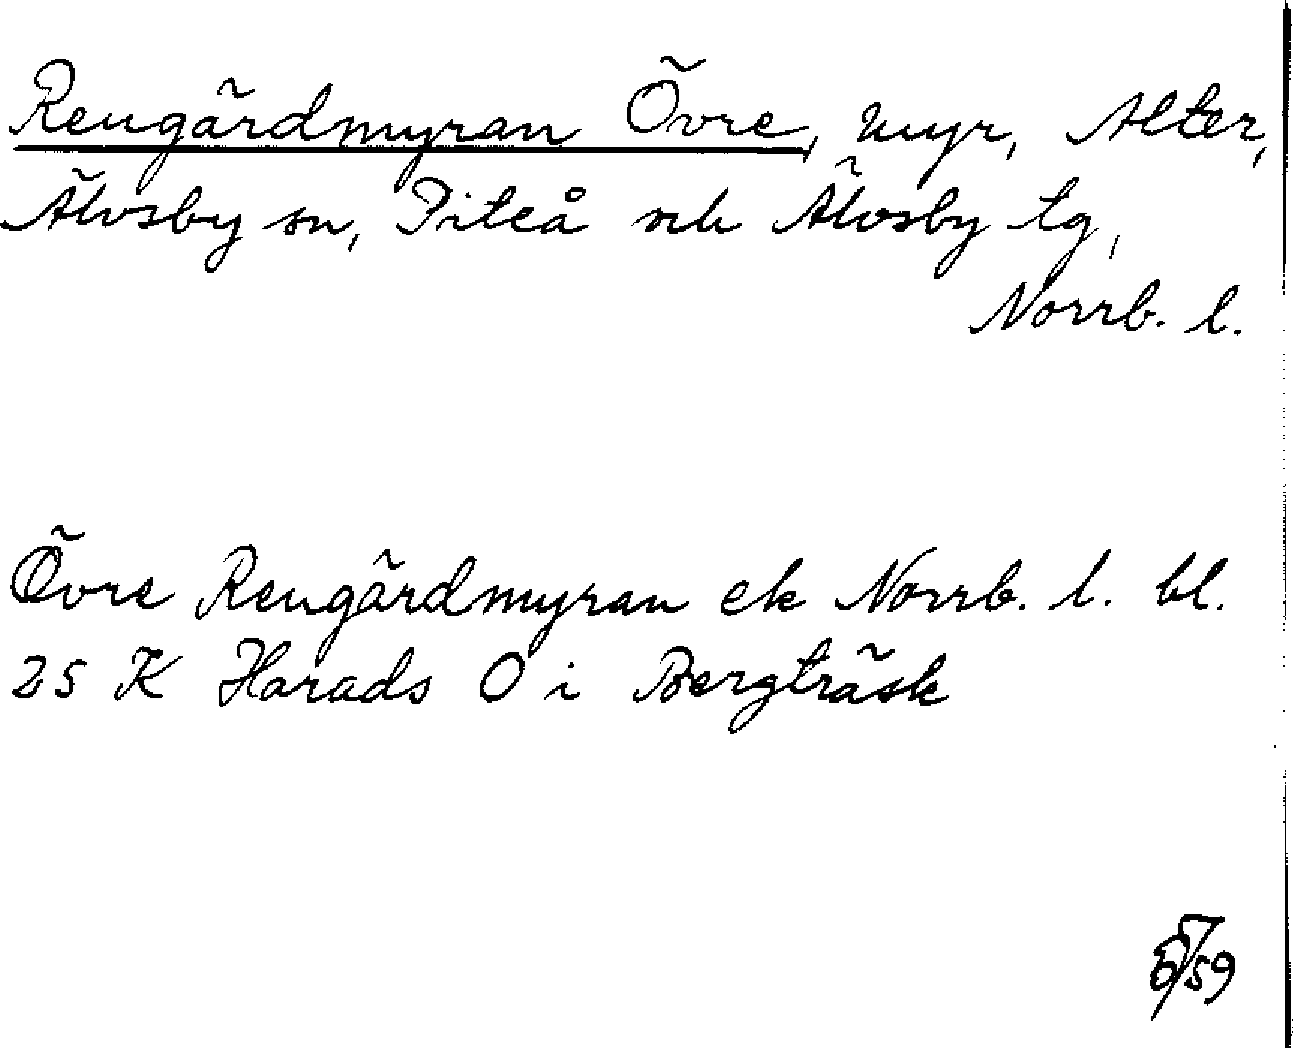 Rengärdmyran Övre, myr, Alter,
Älvsby sn, Piteå och Älvsby tg,
Norrb. l.
Övre Rengärdmyran ek Norrb. l. bl.
25 K Harads O i Bergträsk